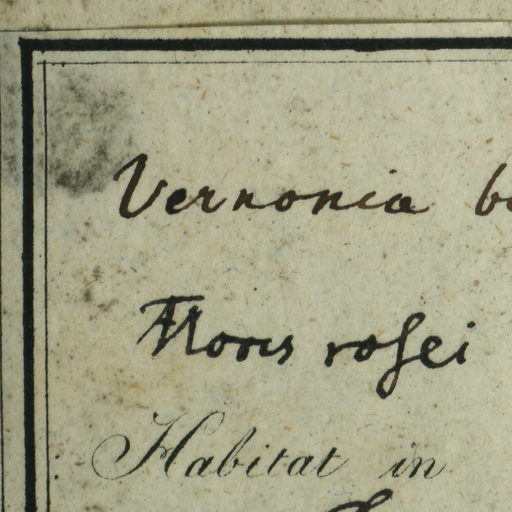 Vernonia b
Flores roſei
Habitat in